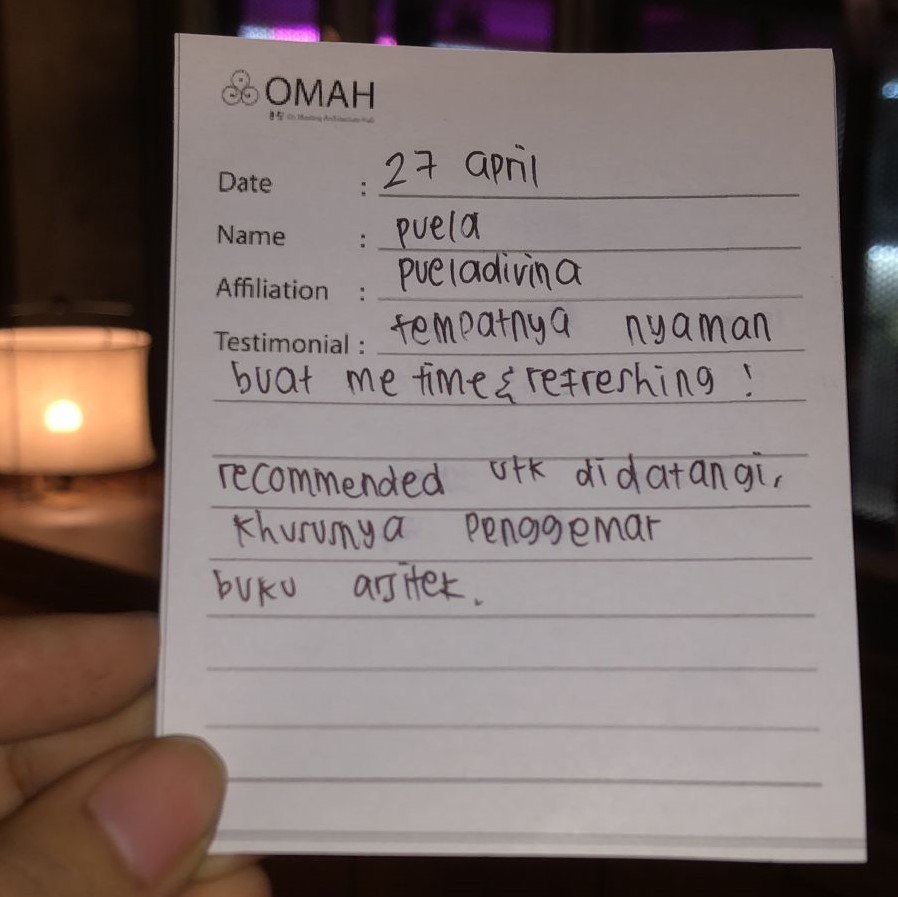 OMAH
Date : 27 april
Name : puela
Affiliation : pueladivina
Testimonial : tempatnya nyaman
buat me time & refreshing !
recommended utk didatangi,
khususnya penggemar
buku arsitek.